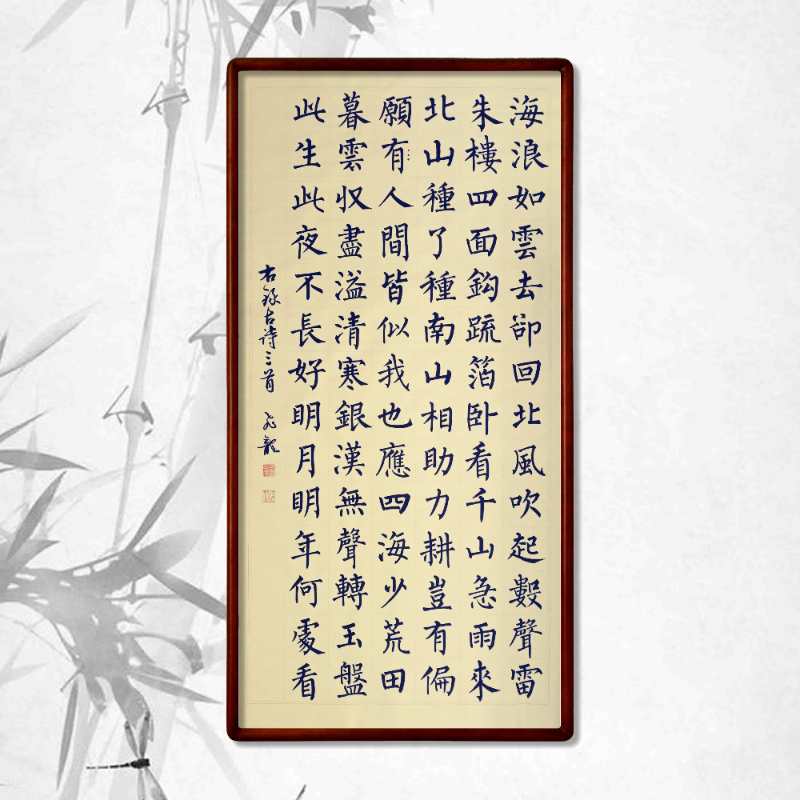 海浪如雲去卻回北風吹起數聲雷
朱樓四面鈎疏箔卧看千山急雨來
北山種了種南山相助力耕豈有偏
願有人間皆似我也應四海少荒田
暮雲収盡溢清寒銀漢無聲轉玉盤
此生此夜不長好明月明年何處看
右錄古詩三首 飛龍